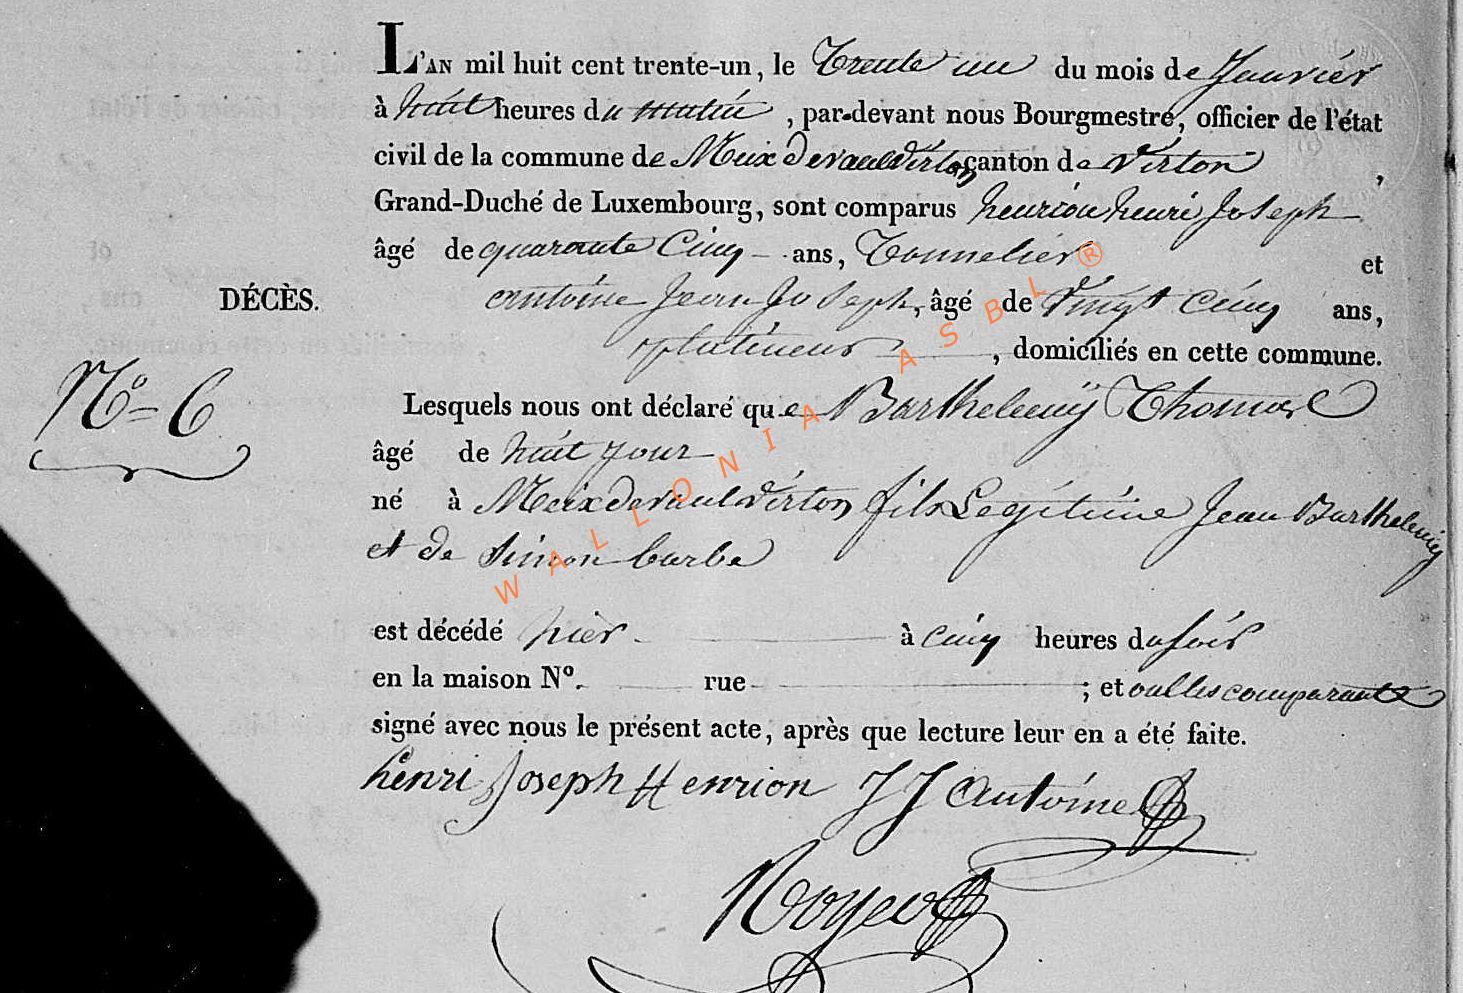 L'AN mil huit cent trente-un, le Trente un du mois de Janvier
à huit heures du matin, par-devant nous Bourgmestre, officier de l'état
civil de la commune de Meix Devant Virton canton de Virton,
Grand-Duché de Luxembourg, sont comparus henrion henri Joseph
âgé de quarante Cinq ans, Tonnelier et
DÉCÈS.
antoine Jean Joseph, âgé de Vingt Cinq ans,
, domiciliés en cette commune.
N° 6
Lesquels nous ont déclaré que Barthelemÿ Thomas
âgé de huit jour
né à Meix devant Virton fils Legitime Jean Barthelemy
et de Simon barbe
est décédé hier à cinq heures du soir
en la maison N°. rue ; et ont les comparants
signé avec nous le présent acte, après que lecture leur en a été faite.
henri Joseph Henrion JJ Antoine
WALLONIA ASBL ®